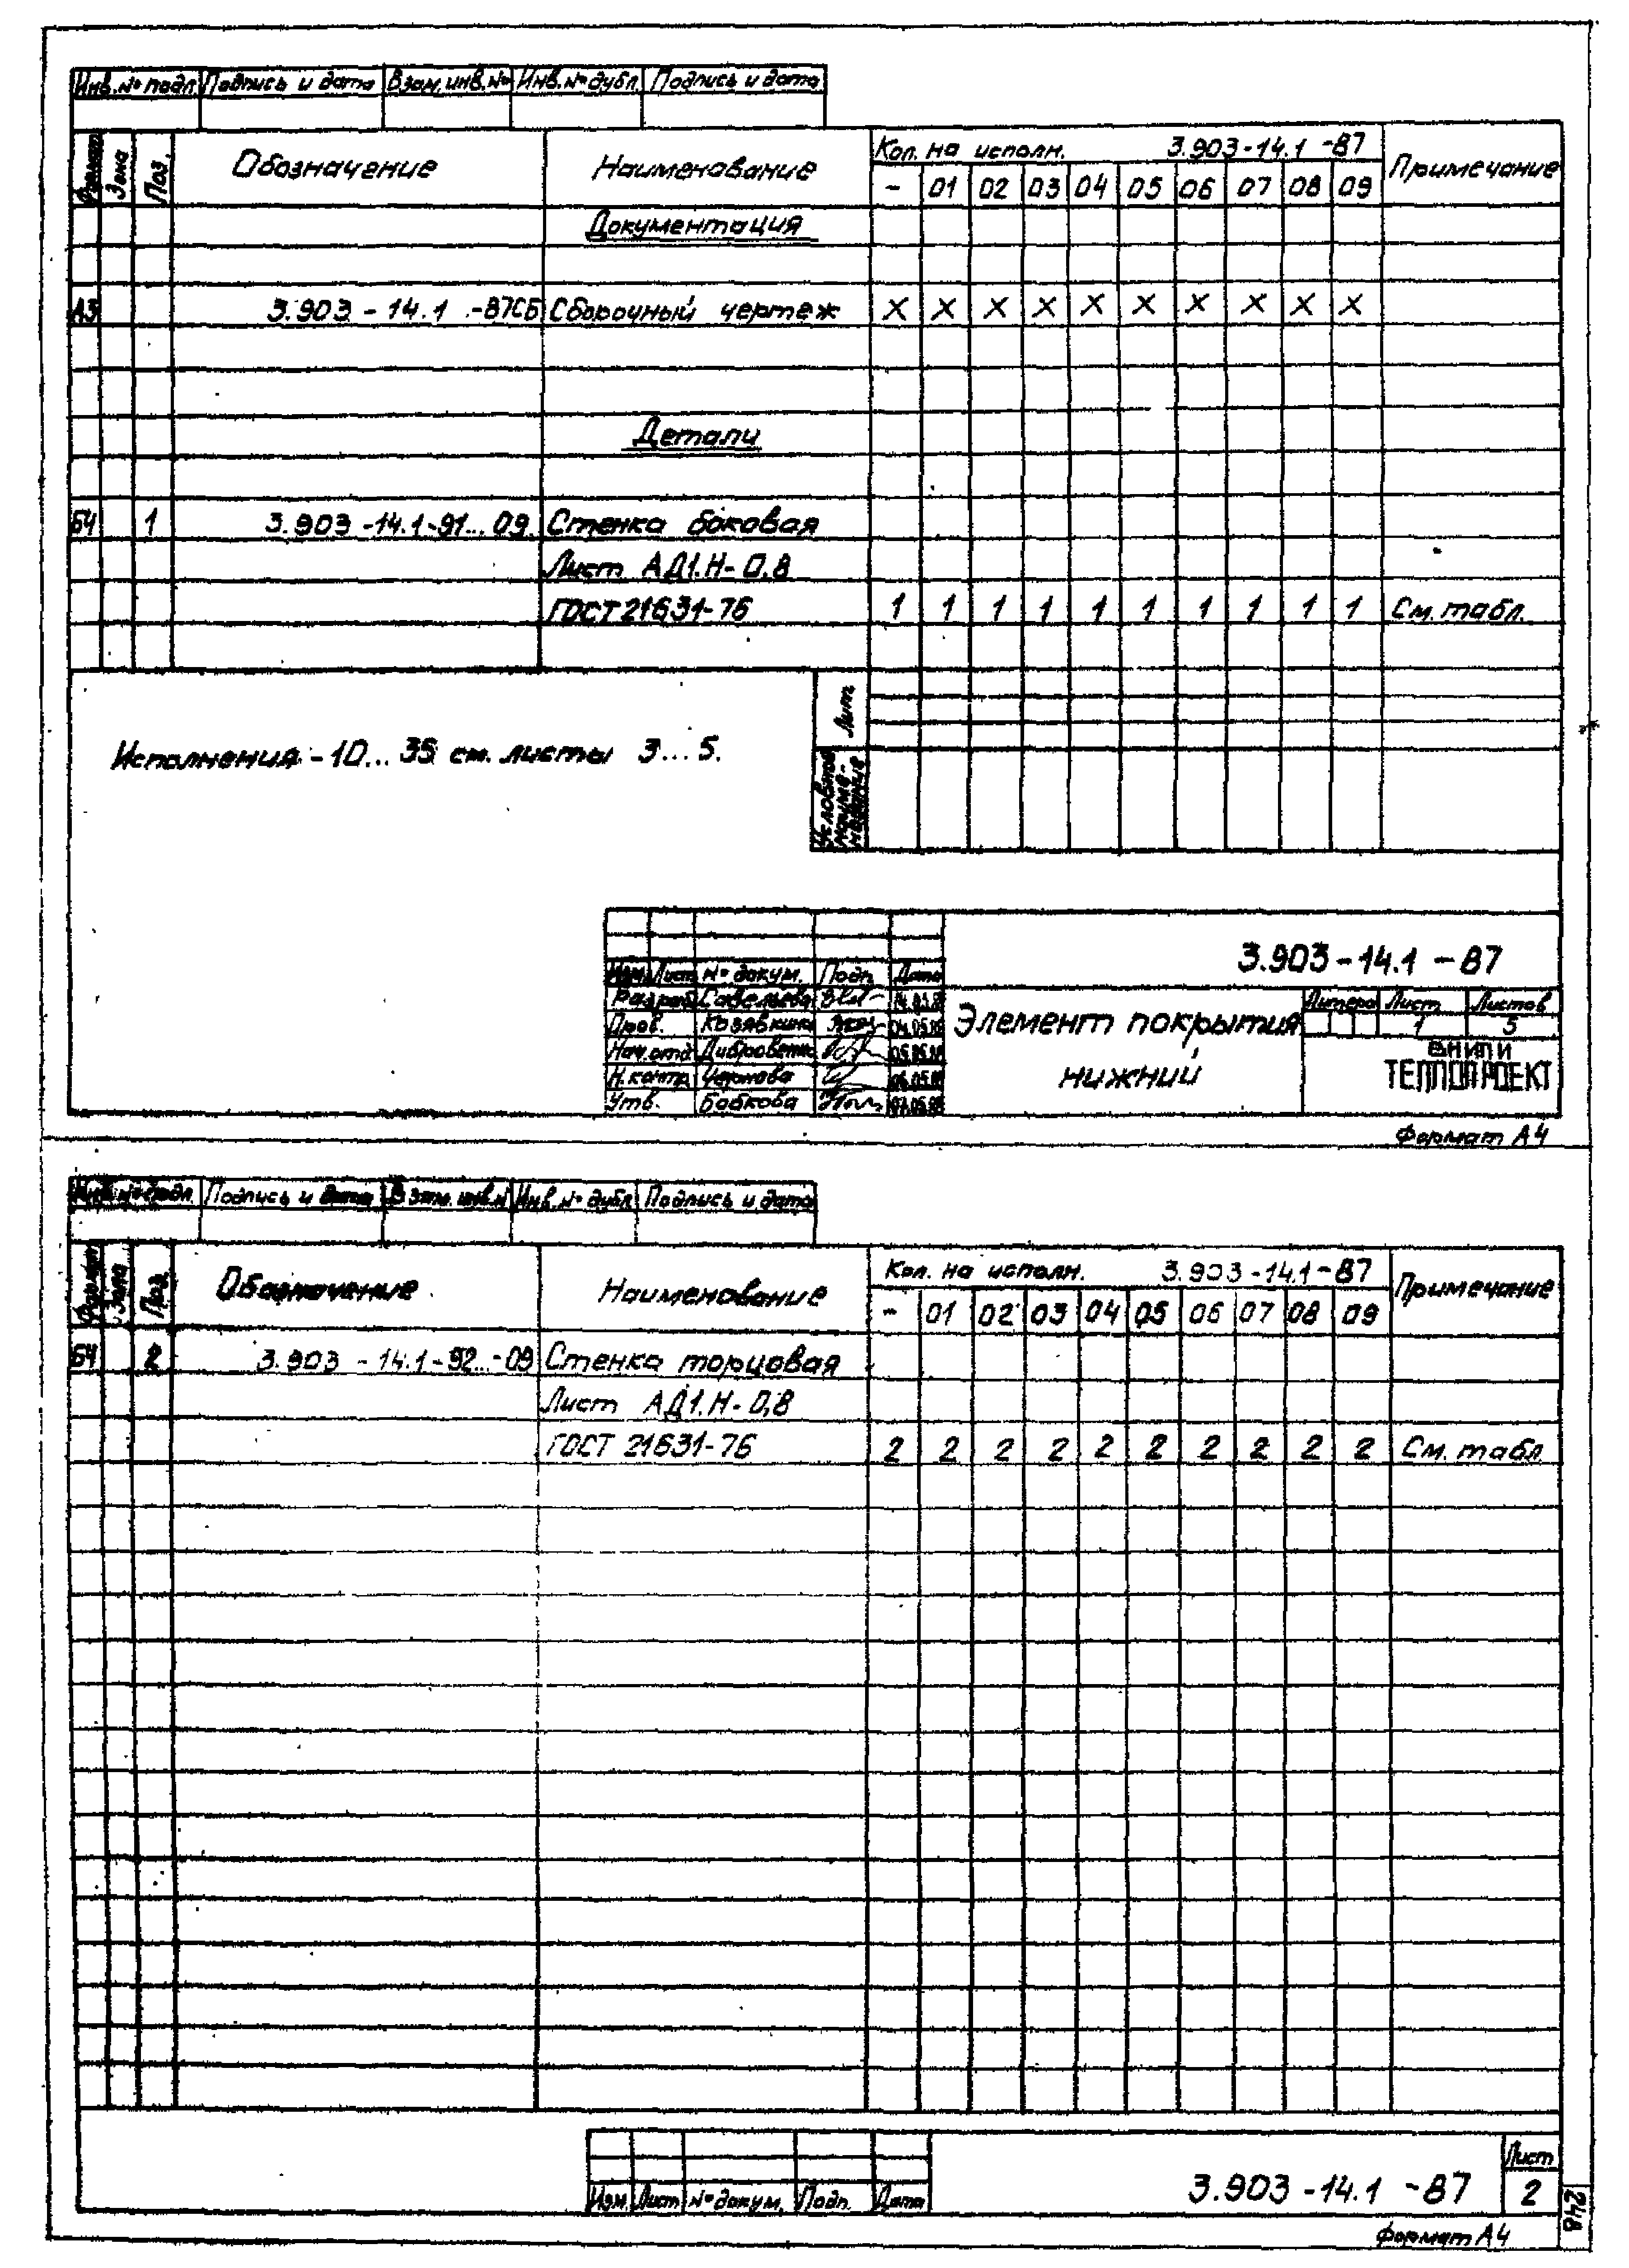 Инв.№ подл. Подпись и дата Взам.инв.№ Инв.№ дубл. Подпись и дата
Формат Зона Поз. Обозначение Наименование Кол. на исполн. 3.903-14.1-87 Примечание
- 01 02 03 04 05 06 07 08 09
Документация
А3 3.903-14.1-87СБ Сборочный чертеж X X X X X X X X X X
Детали
БЧ 1 3.903-14.1-91...09 Стенка боковая
Лист АД1.Н-0,8
ГОСТ 21631-76 1 1 1 1 1 1 1 1 1 1 См. табл.
Лит
Исполнения -10...35 см. листы 3...5.
Условное наиме-нование
3.903-14.1-87
Изм. Лист № докум. Подп. Дата
Разраб. Савельева
Литера Лист Листов
Пров.
1 5
Элемент покрытия
Нач.отд.
нижний
ВНИПИ
ТЕПЛОПРОЕКТ
Н.контр.
Утв. Бобкова
Формат А4
Инв.№ подл. Подпись и дата Взам.инв.№ Инв.№ дубл. Подпись и дата
Формат Зона Поз. Обозначение Наименование Кол. на исполн. 3.903-14.1-87 Примечание
- 01 02 03 04 05 06 07 08 09
БЧ 2 3.903-14.1-92...-09 Стенка торцовая
Лист АД1.Н-0,8
ГОСТ 21631-76 2 2 2 2 2 2 2 2 2 2 См. табл.
Лист
3.903-14.1-87 2
Изм. Лист № докум. Подп. Дата
248
Формат А4